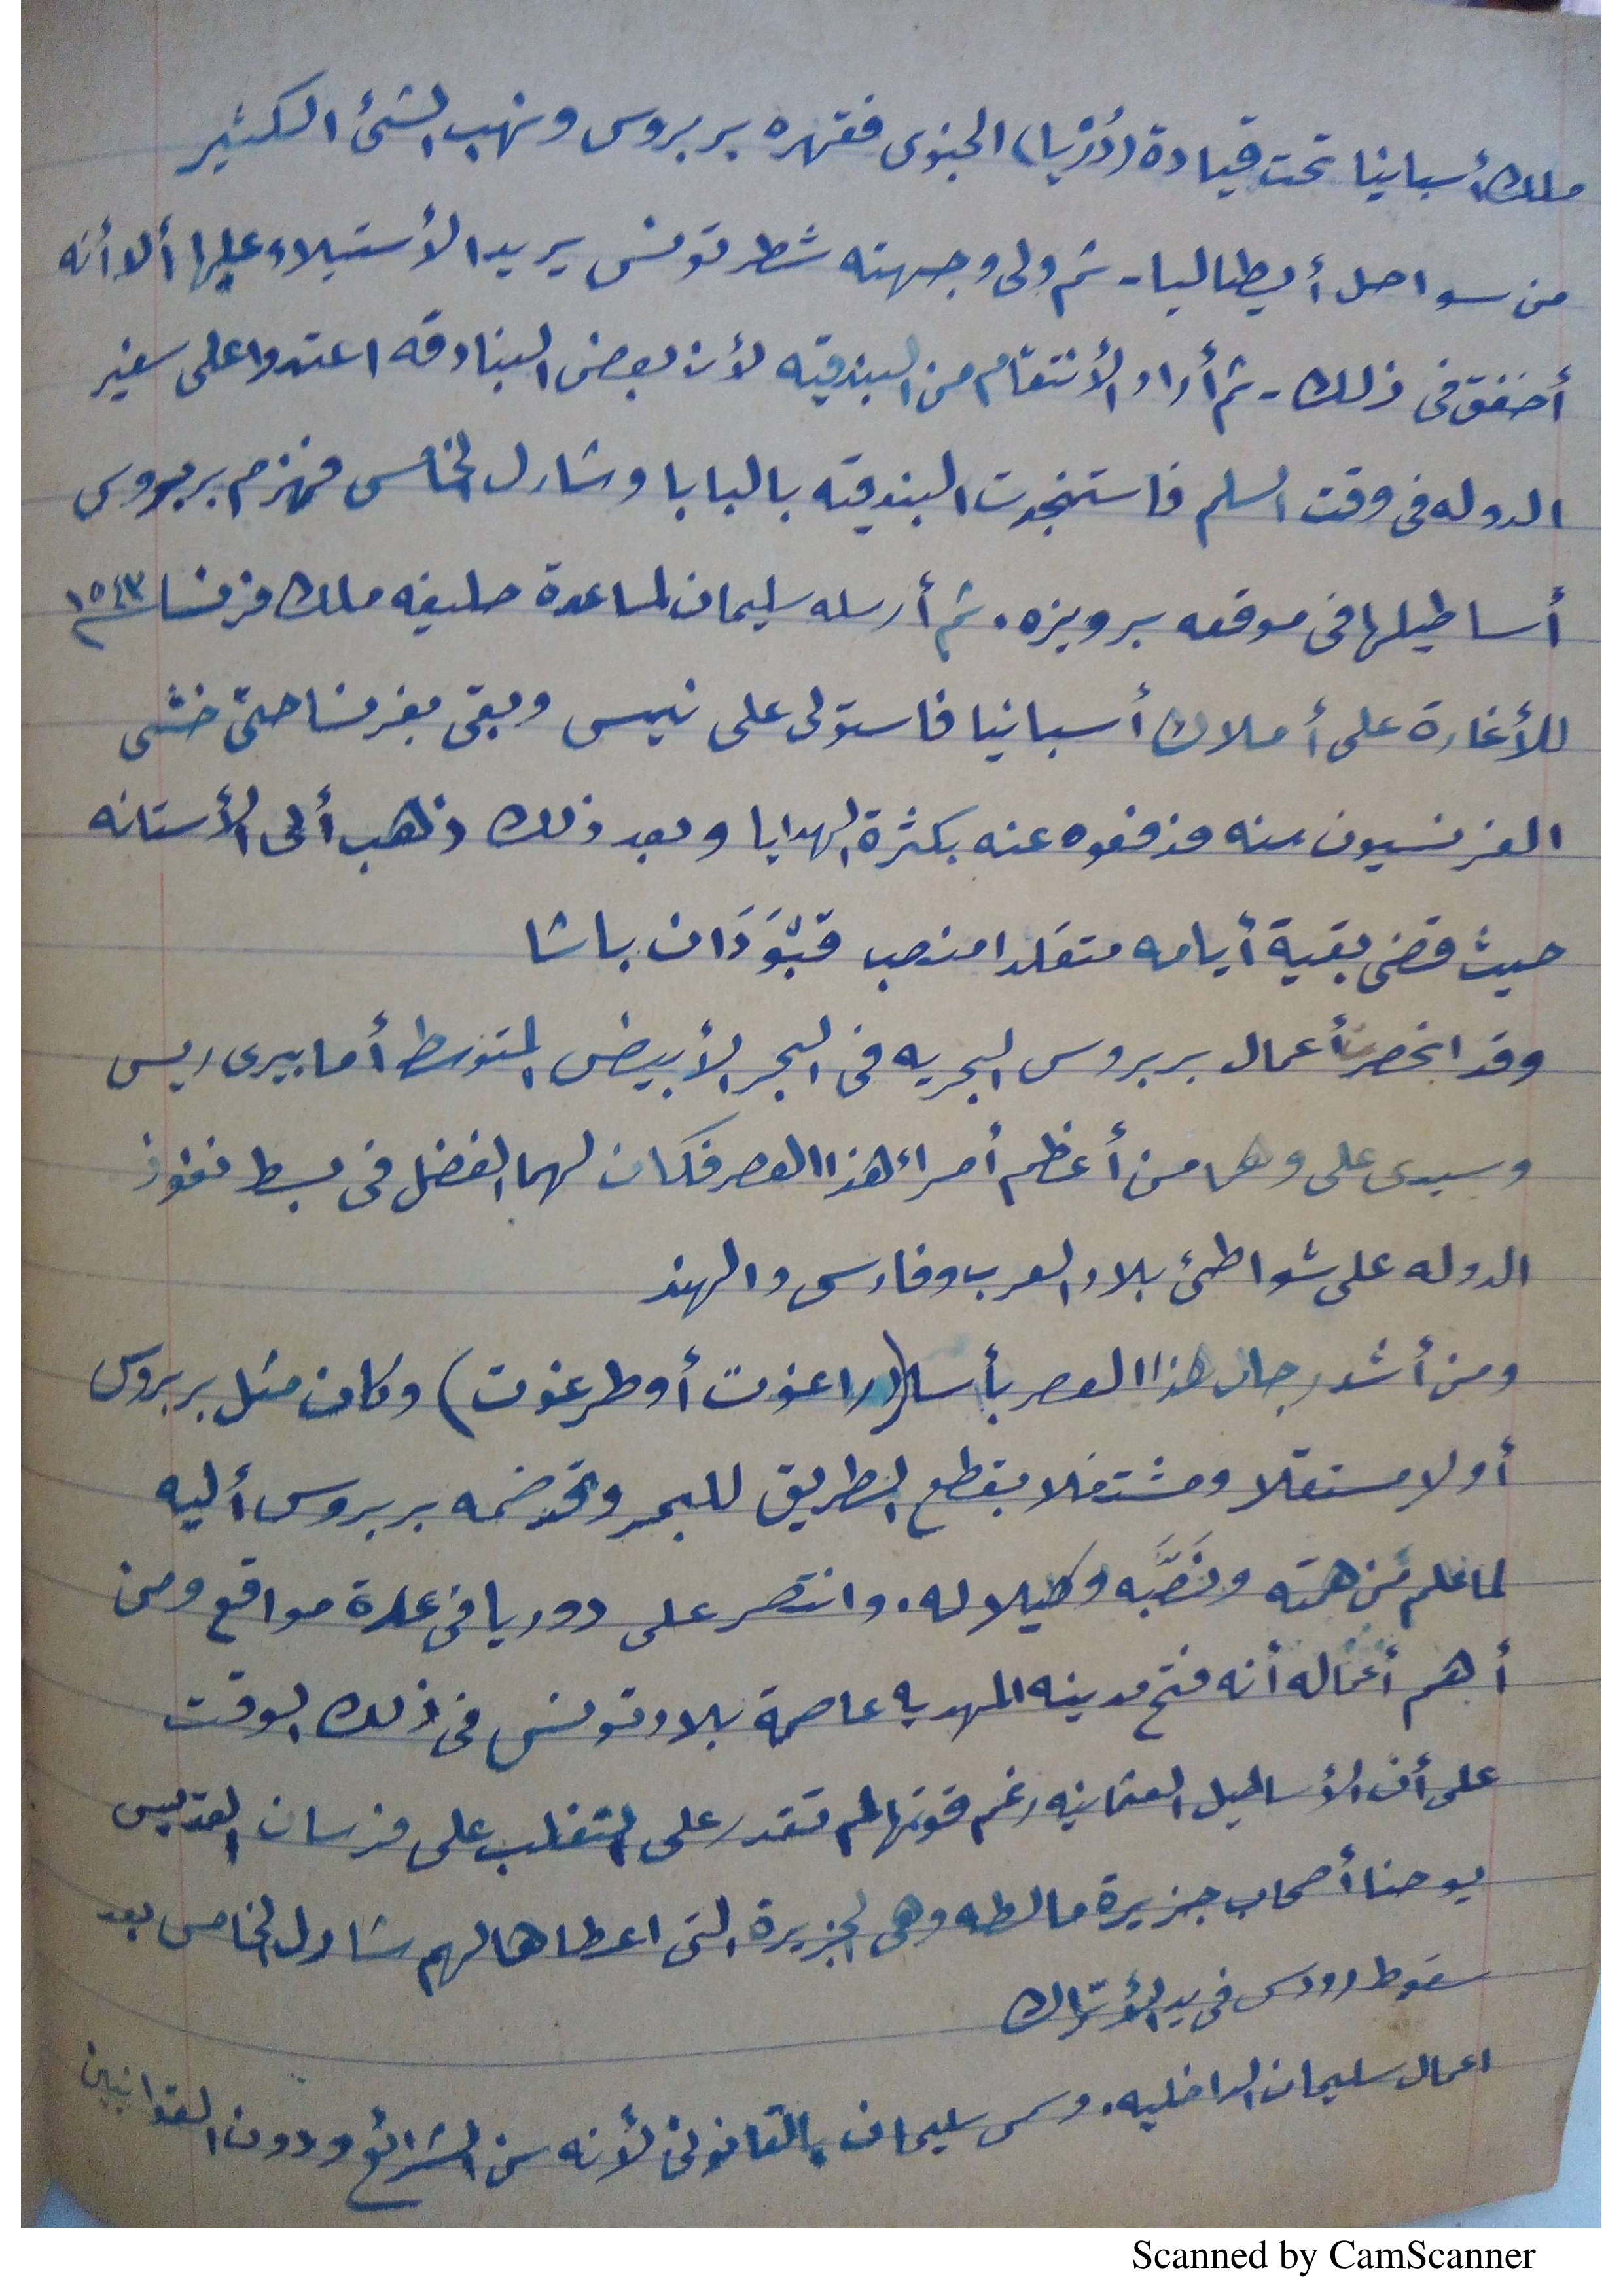 ملك أسبانيا تحت قيادة (دُرْيا) الجنوى فقهره بربروس ونهب الشئ الكثير
من سواحل أيطاليا - ثم ولى وجهته شطر تونس يريد الأستيلاء عليها ألا أنه
أخفق فى ذلك - ثم أراد الأنتقام من البندقيه لأن بعض البنادقه اعتدوا على سفير
الدوله فى وقت السلم فاستنجدت البندقيه بالبابا وشارل الخامس فهزم بربروس
أساطيلها فى موقعه برويزه . ثم أرسله سليمان لمساعدة حليفه ملك فرنسا ١٥٤٣م
للأغارة على أملاك أسبانيا فاستولى على نيس وبقى بفرنسا حتى خشى
الفرنسيون منه فدفعوه عنه بكثرة الهدايا وبعد ذلك ذهب ألى الأستانه
حيث قضى بقية أيامه متقلدا منصب قبْوَدَان باشا
وقد انحصرت أعمال بربروس البحريه فى البحر الأبيض المتوسط أما بيرى ريس
وسيدى على وهما من أعظم أمراء هذا العصر فكان لهما الفضل فى بسط نفوذ
الدوله على شواطئ بلاد العرب وفارس والهند
ومن أشد رجال هذا العصر بأسا (راغوت أو طرغوت) وكان مثل بربروس
أولا مستقلا ومشتغلا بقطع الطريق للبحر وقد ضمه بربروس أليه
لما علم من همته ونَصَّبه وكيلا له . وانتصر على دوريا فى عدة مواقع ومن
أهم أعماله أنه فتح مدينه المهديه عاصمة بلاد تونس فى ذلك الوقت
على أن الأساطيل العثمانيه رغم قوتها لم تقدر على التغلب على فرسان القديس
يوحنا أصحاب جزيرة مالطه وهى الجزيرة التى اعطاها لهم شارل الخامس بعد
سقوط رودس فى يد الأتراك
اعمال سليمان الداخليه . وسمى سليمان بالقانونى لأنه سن الشرائع ودون القوانين
Scanned by CamScanner